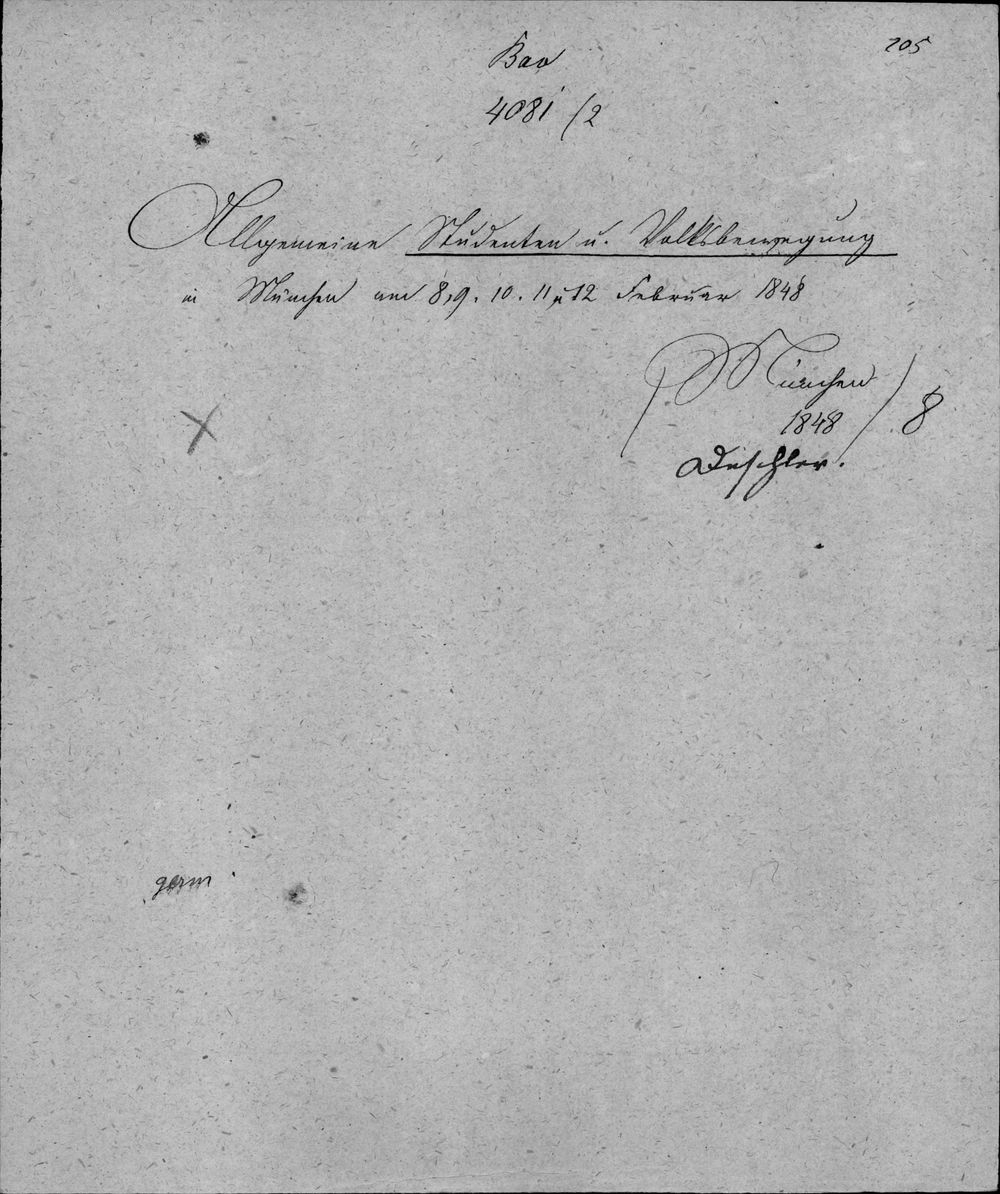 205
Bav
4081/2
Allgemeine Studenten u. Volksbewegung
in München am 8, 9. 10. 11 u 12 Februar 1848
(München
1848) 8
Deschler.
germ